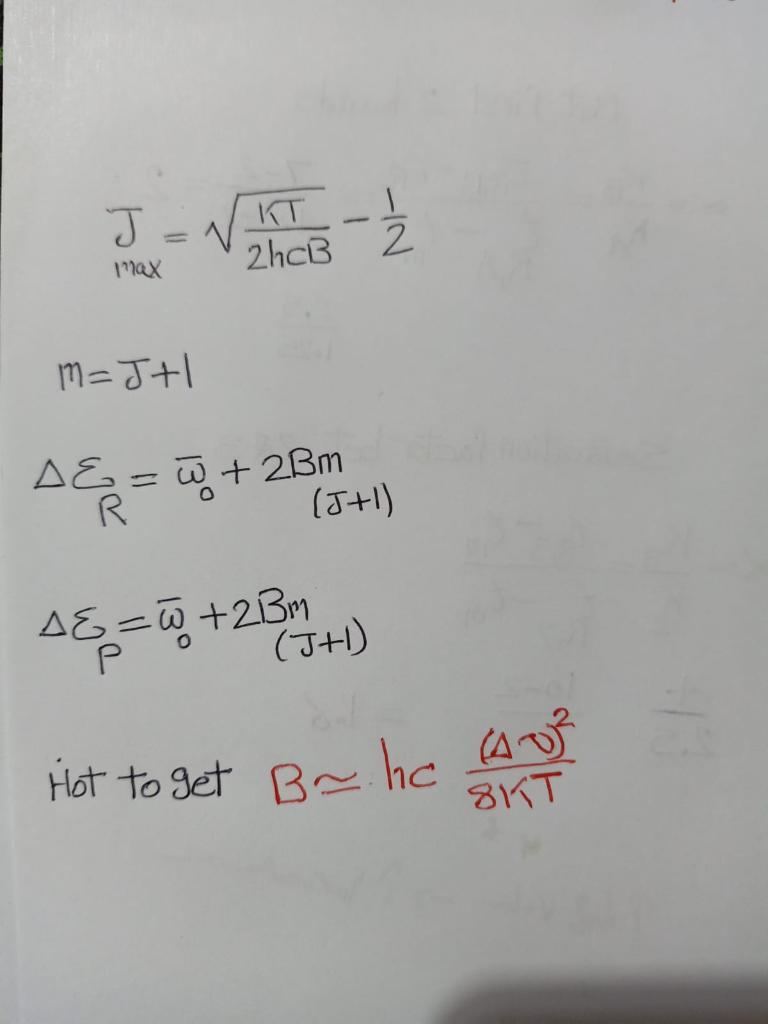 J max = √(KT / 2hcB) − 1/2
m = J+1
Δε_R = ω̄₀ + 2Bm
(J+1)
Δε_P = ω̄₀ + 2Bm
(J+1)
Hot to get B ≃ hc (Δν)² / 8KT